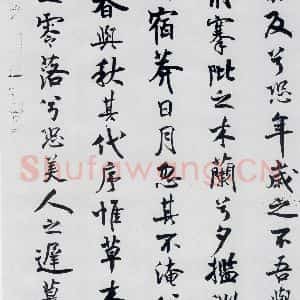 及兮恐年歲之不吾與
搴阰之木蘭兮夕攬洲
宿莽日月忽其不淹
春與秋其代序惟草木
零落兮恐美人之遲暮
Shufawang.CN